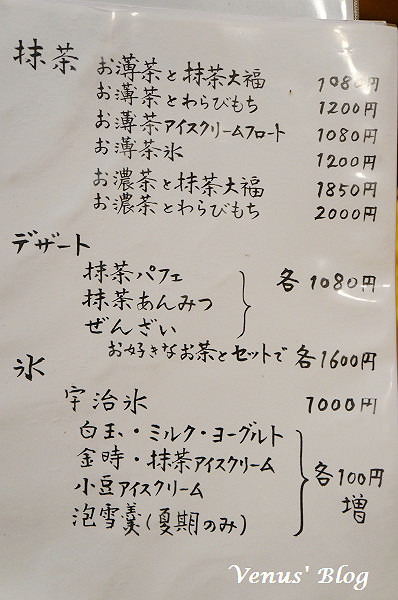 抹茶
お薄茶と抹茶大福 1080円
お薄茶とわらびもち 1200円
お薄茶アイスクリームフロート 1080円
お薄茶氷 1200円
お濃茶と抹茶大福 1850円
お濃茶とわらびもち 2000円
デザート
抹茶パフェ
抹茶あんみつ 各1080円
ぜんざい
お好きなお茶とセットで 各1600円
氷
宇治氷 1000円
白玉・ミルク・ヨーグルト
金時・抹茶アイスクリーム 各100円
小豆アイスクリーム 増
泡雪羹(夏期のみ)
Venus' Blog